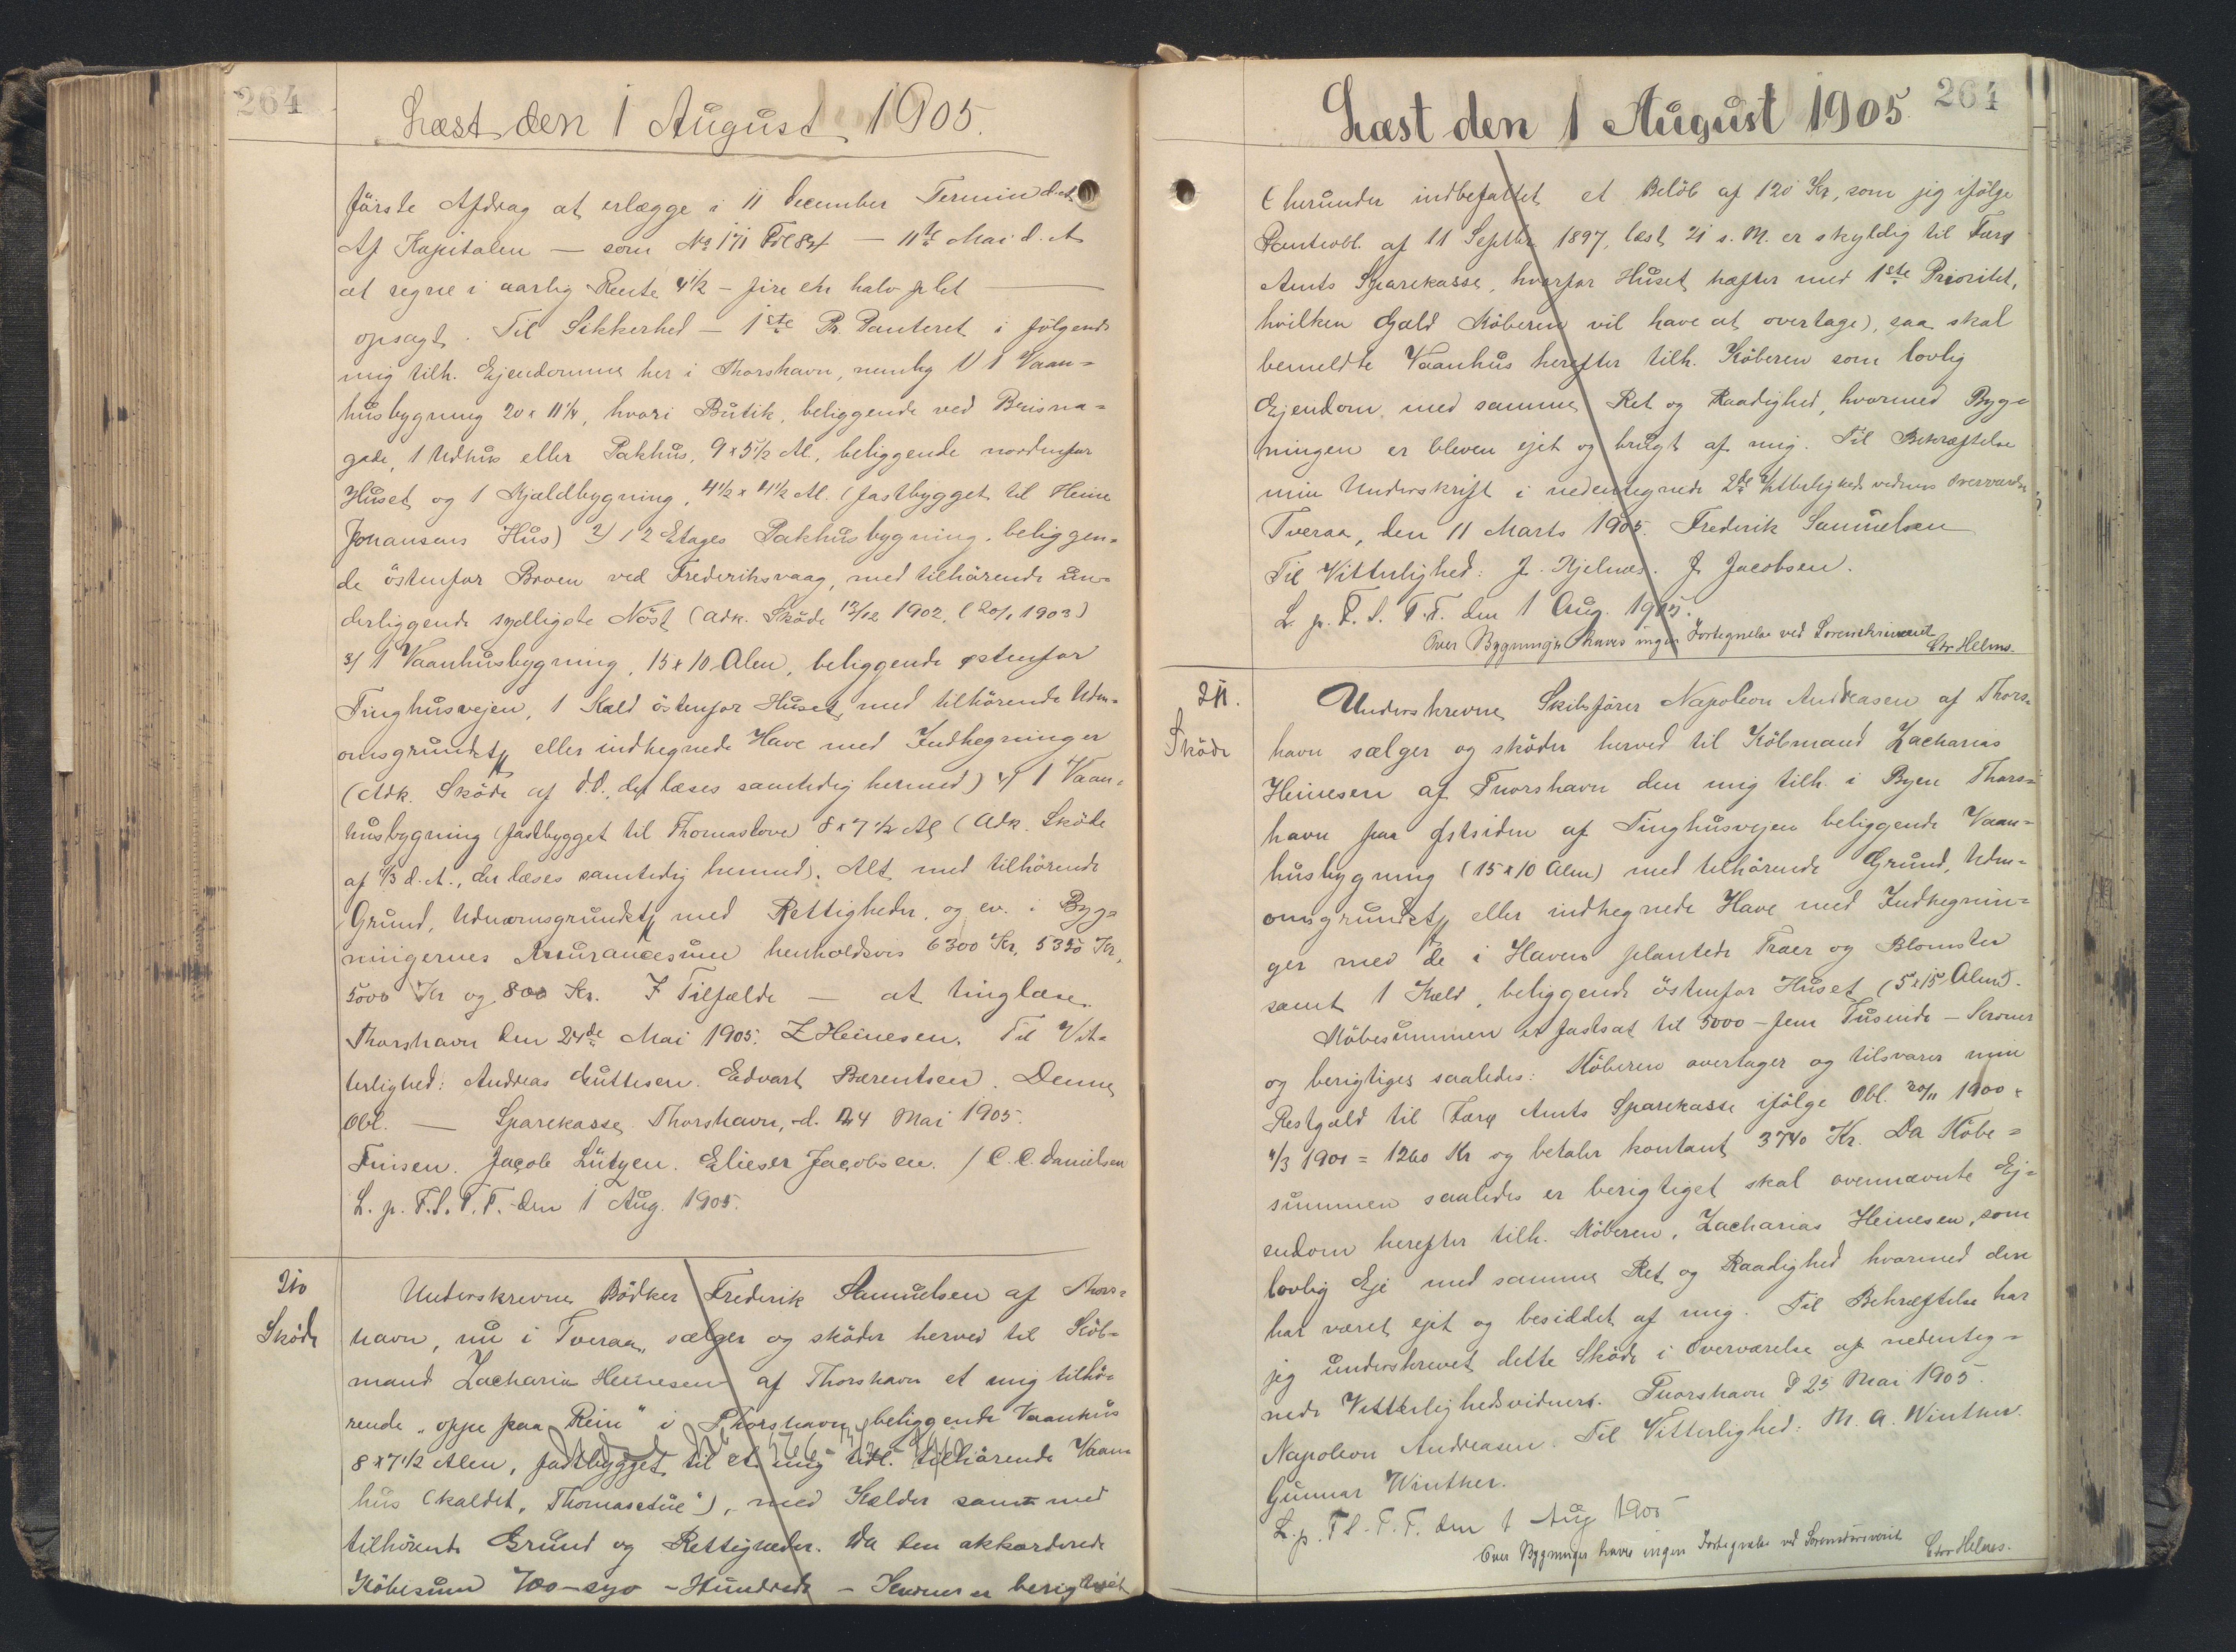 264
Læst den 1 August 1905.
förste Afdrag at erlægge i 11 December Termin d.A.
Af Kapitalen — som No 171 Fol 84 — 11te Mai d. A
at regne i aarlig Rente 4½ - fire en halv pCt —
opsagt. Til Sikkerhed — 1ste Pr. Panteret i fölgende
mig tilh. Ejendomme her i Thorshavn, nemlig 1/ 1 Vaan=
husbygning 20 x 11¼, hvori Butik, beliggende ved
gade, 1 Udhus eller Pakhus, 9 x 5½ Al., beliggende nordenfor
Huset og 1 Kjældbygning, 4½ x 4½ Al. (fastbygget til Heine
Johansens Hus) 2/ 1 2 Etages Pakhusbygning, beliggen=
de östenfor Broen ved Frederiksvaag, med tilhörende un=
derliggende sydligste Nöst (Adk. Sköde 12/12 1902, (20/1 1903)
3/ 1 Vaanhusbygning, 15 x 10 Alen, beliggende østenfor
Tinghusvejen, 1 Kæld östenfor Huset, med tilhörende Udm=
omsgrundstk eller indhegnede Have med Indhegninger
(Adk. Sköde af D.D., der læses samtidig hermed) 4/ 1 Vaan=
husbygning (fastbygget til Thomastove) 8 x 7½ Al (Adk. Sköde
af 11/3 d. A., der læses samtidig hermed). Alt med tilhörende
Grund, Udmarnsgrundstk med Rettigheder, og ev. i Byg=
ningernes Assurancesum henholdsvis 6300 Kr, 5350 Kr,
5000 Kr og 800 Kr. I Tilfælde — at tinglæse.
Thorshavn den 24de Mai 1905. Z Heinesen. Til Vit=
terlighed: Andreas Guttesen. Edvart Bærentsen. Denne
Obl. — Sparekasse. Thorshavn, d. 24 Mai 1905.
Finsen. Jacob Lützen. Elieser Jacobsen. / C. C. Danielsen
L. p. F. S. T. F. den 1 Aug. 1905.
210
Sköde
Underskrevne Bödker Frederik Samuelsen af Thors=
havn, nu i Tveraa, sælger og sköder herved til Köb=
mand Zacharia Heinesen af Thorshavn et mig tilhö=
rende "oppe paa Rein" i Thorshavn beliggende Vaanhus
8 x 7½ Alen, fastbygget til et mig tilhörende Vaan=
hus (kaldet, "Thomasstue"), med Kælder samt med
tilhörende Grund og Rettigheder. Da den akkorderede
Köbesum 700 - syv - Hundrede - Kroner er berigtiget
264
Læst den 1 August 1905.
(herunder indbefattet et Belöb af 120 Kr, som jeg ifölge
Panteobl. af 11 Septbr 1897, læst 21 s. M. er skyldig til Færø
Amts Sparekasse, hvorfor Huset hæfter med 1ste Prioritet,
hvilken Gæld Köberen vil have at overtage), saa skal
bemeldte Vaanhus herefter tilh. Köberen som lovlig
Ejendom, med samme Ret og Raadighed, hvormed Byg=
ningen er bleven ejet og brugt af mig. Til Bekræftelse
min Underskrift i nedentegnede 2de Vitterlighedsvidners Overværelse
Tveraa, den 11 Marts 1905. Frederik Samuelsen
Til Vitterlighed: J. Kjelnæs. J. Jacobsen.
L. p. F. S. T. F. den 1 Aug. 1905.
Over Bygningen haves ingen Fortegnelse ved Sorenskriveriet
Chr Helms.
211.
Sköde
Underskrevne Skibsförer Napoleon Andreasen af Thors=
havn sælger og sköder herved til Köbmand Zacharias
Heinesen af Thorshavn den mig tilh. i Byen Thors=
havn paa Østsiden af Tinghusvejen beliggende Vaan=
husbygning (15 x 10 Alen) med tilhörende Grund, Udm=
omsgrundstk eller indhegnede Have med Indhegnin=
ger med de i Haven plantede Træer og Blomster
samt 1 Kæld, beliggende östenfor Huset (5 x 15 Alen).
Köbesummen er fastsat til 5000 - fem Tusinde - Kroner
og berigtiges saaledes: Köberen overtager og tilsvarer min
Restgæld til Færø Amts Sparekasse ifölge Obl. 20/11 1900 &
4/3 1901 = 1260 Kr og betaler kontant 3740 Kr. Da Köbe=
summen saaledes er berigtiget skal ovennævnte Ej=
endom herefter tilh. Köberen, Zacharias Heinesen, som
lovlig Eje med samme Ret og Raadighed hvormed den
har været ejet og besiddet af mig. Til Bekræftelse har
jeg underskrevet dette Sköde i Overværelse af nedenteg=
nede Vitterlighedsvidner. Thorshavn d 25 Mai 1905.
Napoleon Andreasen. Til Vitterlighed: M. A. Winther.
Gunnar Winther.
L. p. F S. T. F. den 1 Aug 1905
Over Bygninger haves ingen Fortegnelse ved Sorenskriveriet
Chr Helms.